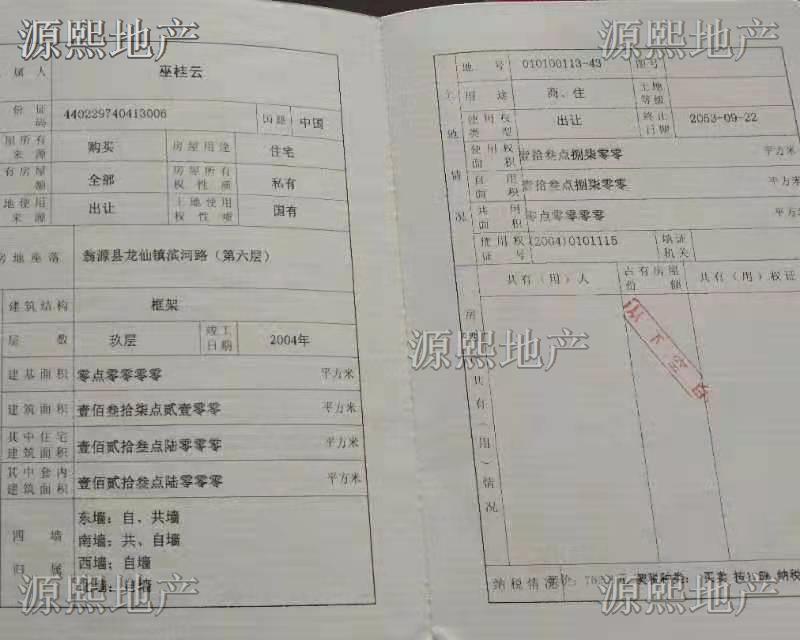 源熙地产
源熙地产
属人 巫桂云
份证码 440229740413006 国籍 中国
来源 购买 房屋用途 住宅
有房屋额 全部 房屋所有权性质 私有
地使用来源 出让 土地使用权性质 国有
房地座落 翁源县龙仙镇滨河路（第六层）
建筑结构 框架
层数 玖层 竣工日期 2004年
建基面积 零点零零零零 平方米
建筑面积 壹佰叁拾柒点贰壹零零 平方米
其中住宅建筑面积 壹佰贰拾叁点陆零零零 平方米
其中套内建筑面积 壹佰贰拾叁点陆零零零 平方米
四墙归属
东墙：自、共墙
南墙：共、自墙
西墙：自墙
北墙：自墙
地号 010100113-43 图号
土 用途 商、住 土地等级
地 使用权类型 出让 终止日期 2053-09-22
使用权面积 壹拾叁点捌柒零零 平方米
情 自用面积 壹拾叁点捌柒零零 平方米
况 共用面积 零点零零零零 平方
使用权证号 (2004)0101115 填证机关
共有（用）人 占有房屋份额 共有（用）权证
房
共有（用）情况
源熙地产
纳税情况
买卖
纳税
源熙地产
源熙地产